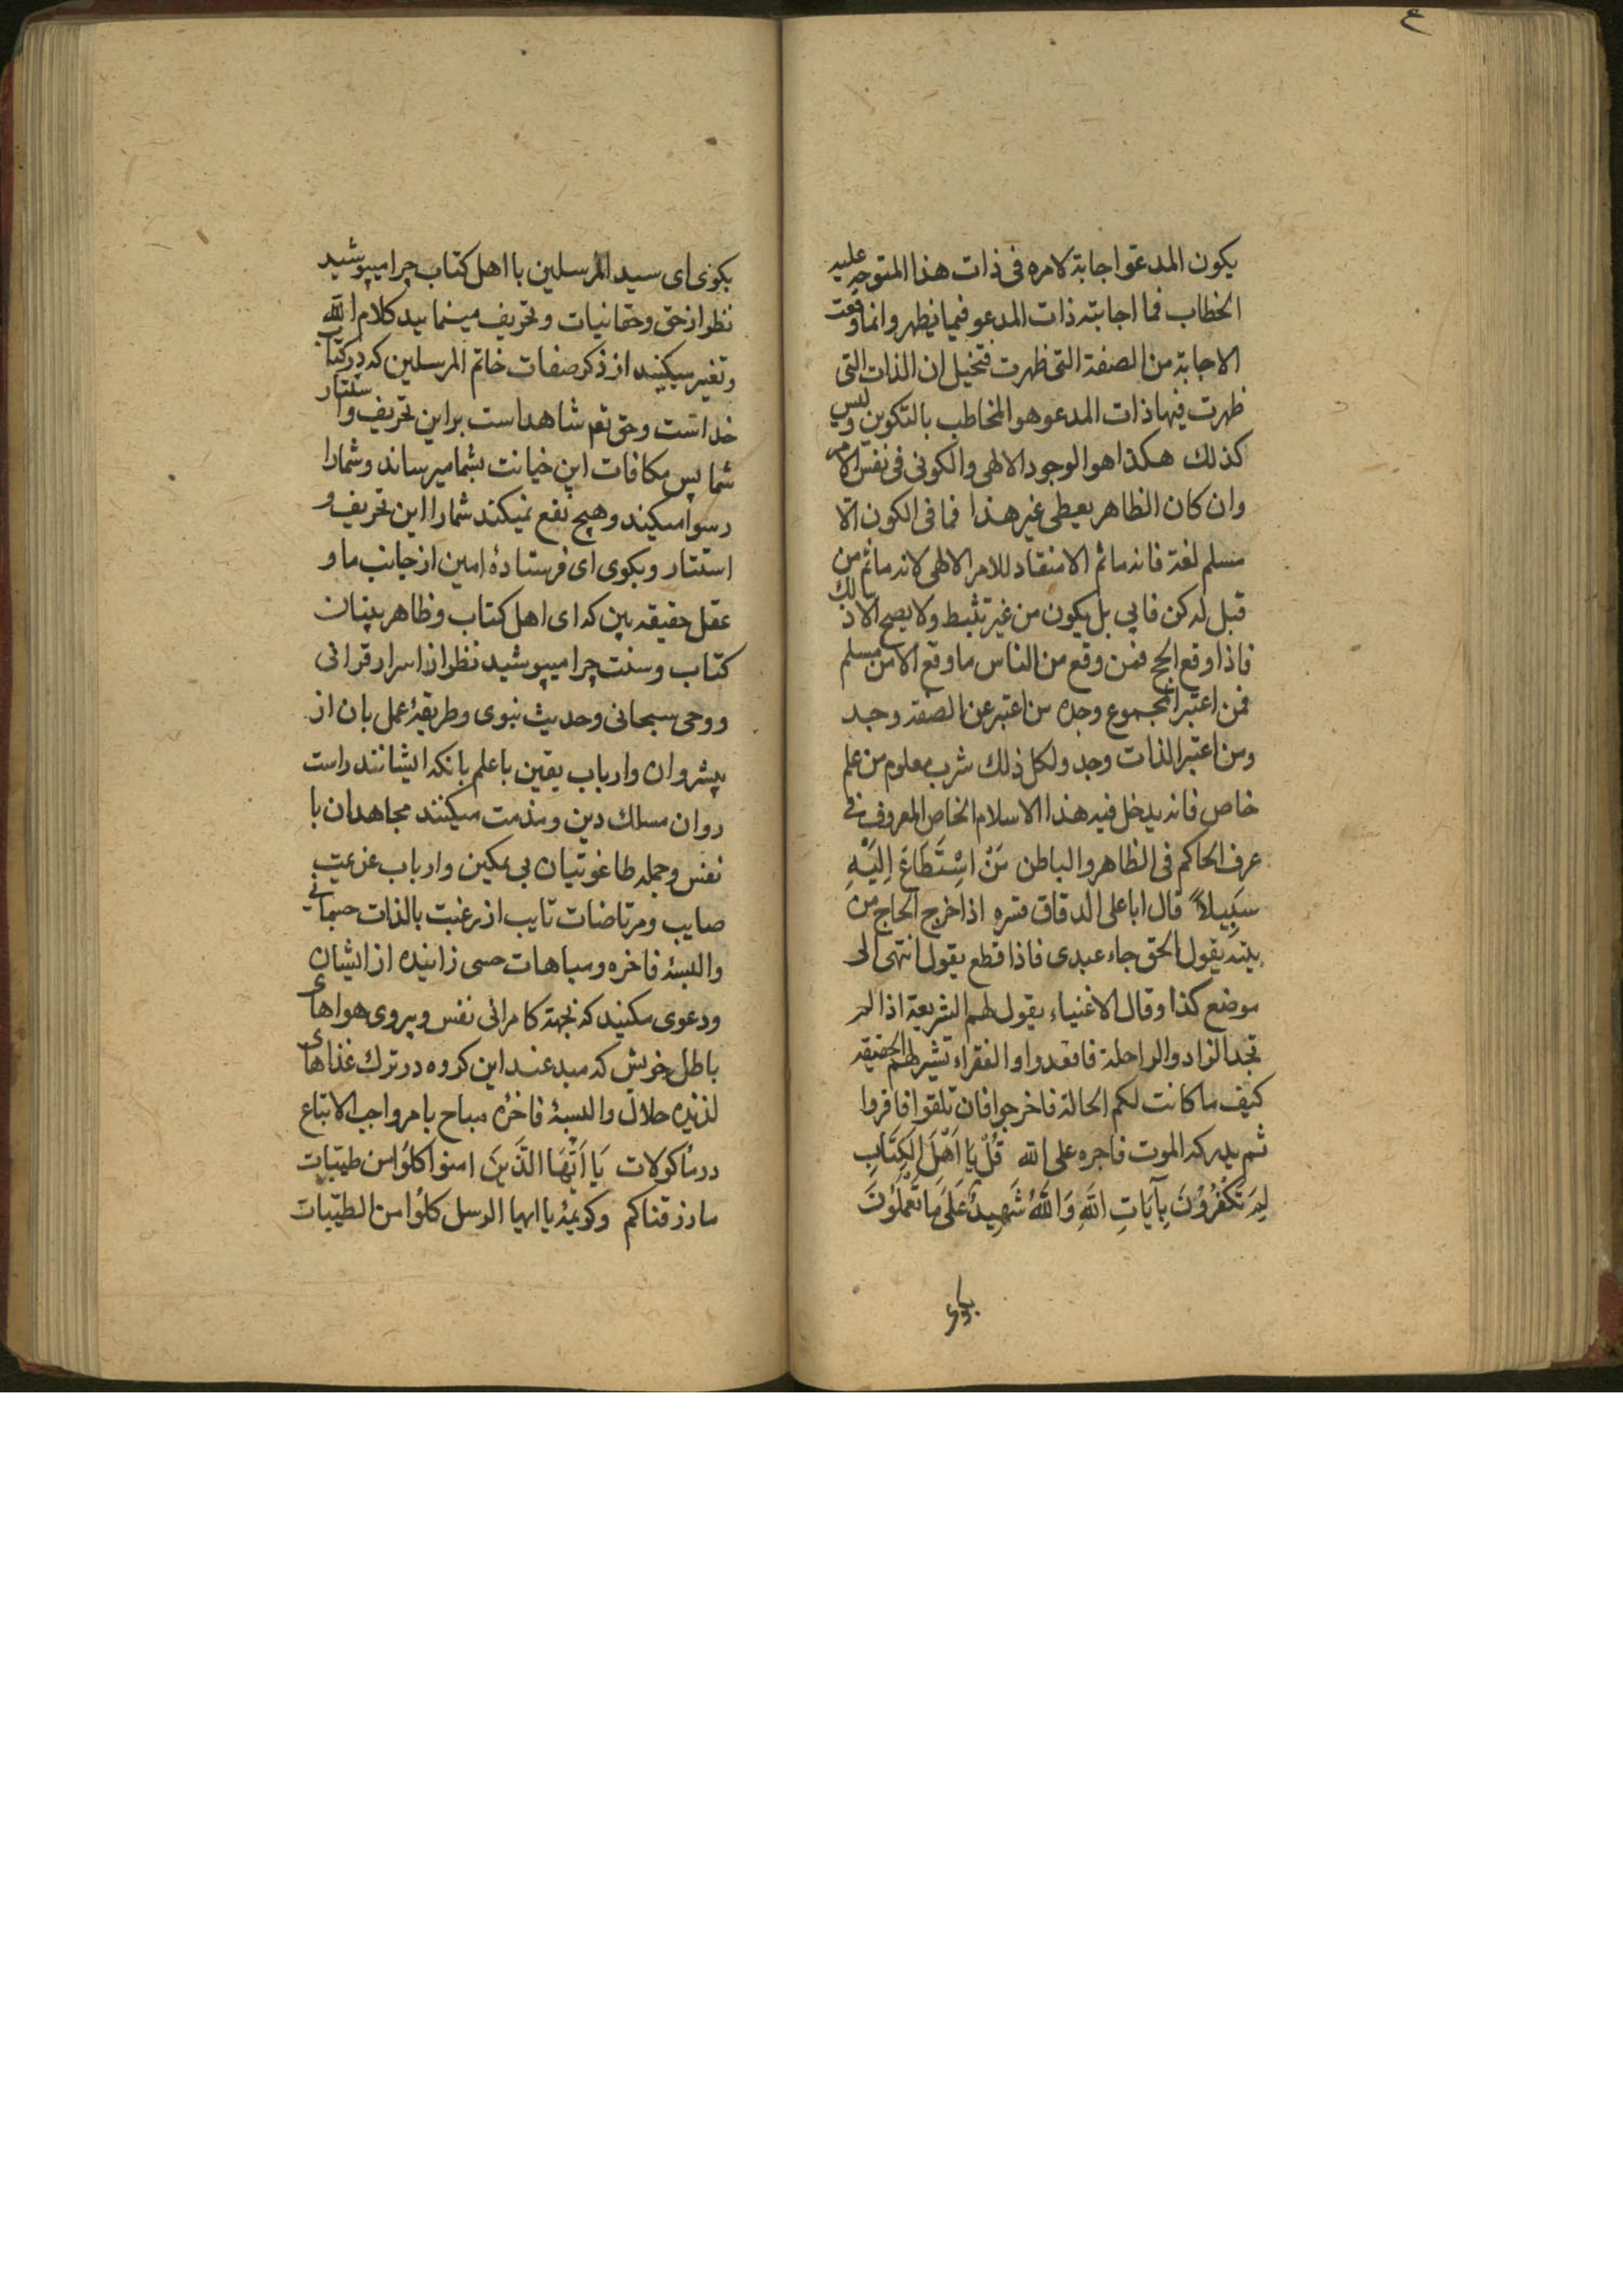 ع
یکون المدعو اجابة لامره فی ذات هذا المتوجه علیه
الخطاب فما اجابته ذات المدعو فیما یظهر وانما وقعت
الاجابة من الصفة التی ظهرت فتخیل ان الذات التی
ظهرت فیها ذات المدعو هو المخاطب بالتکوین ولیس
کذلك هکذا هو الوجود الالهی والکونی فی نفس الامر
وان کان الظاهر یعطی غیر هذا فما فی الکون الا
مسلم لغة فانه ماثم الا منقاد للامر الالهی لانه ماثم من
قبل له کن فابی بل یکون من غیر تثبط ولا یصح الا ذالك
فاذا وقع الحج فمن وقع من الناس ما وقع الا من مسلم
فمن اعتبر المجموع وجده من اعتبر عن الصفة وجد
ومن اعتبر الذات وجد ولکل ذلك شرب معلوم من علم
خاص فانه یدخل فیه هذا الاسلام الخاص المعروف فی
عرف الحاکم فی الظاهر والباطن مَنْ اسْتَطَاعَ اِلَیْهِ
سَبِیلاً قال ابا علی الدقاق سره اذا خرج الحاج من
بیته یقول الحق جاء عبدی فاذا قطع یقول انتهی الی
موضع کذا وقال الاغنیاء یقول لهم الشریعة اذا لم
تجد الزاد والراحلة فاقعدوا والفقراء تشیر لهم الحقیقه
کیف ما کانت لکم الحالة فاخرجوا فان تلقوا فاقروا
ثم یدرکه الموت فاجره علی الله قُلْ یَا اَهْلَ الکِتَابِ
لِمَ تَکْفُرُوْنَ بِآیَاتِ اللّٰهِ وَاللّٰهُ شَهِیدٌ عَلَی مَا تَعْمَلُوْنَ
بکوی
بکوی ای سید المرسلین با اهل کتاب چرا میپوشید
نظر از حق وحقانیات وتحریف مینمایید کلام الله
وتغیر میکنید از ذکر صفات خاتم المرسلین که در کتاب
خداست وحق تعم شاهد است بر این تحریف واستتار
شما پس مکافات این خیانت بشما میرساند وشما را
رسوا میکند وهیچ نفع نمیکند شما را این تحریف و
استتار وبکوی ای فرستادهٔ امین از جانب ما و
عقل حقیقه بین که ای اهل کتاب وظاهر بینان
کتاب وسنت چرا میپوشید نظر از اسرار قرانی
ووحی سبحانی وحدیث نبوی وطریقهٔ عمل بان از
پیشروان وارباب یقین با علم بانکه ایشانند راست
روان مسلك دین ومذمت میکنند مجاهدان با
نفس وجمله طاغوتیان بی تمکین وارباب عزیمت
صایب ومرتاضات تایب از رغبت بالذات جسمانی
والبسهٔ فاخره ومباهات حسی زاینده از ایشان
ودعوی مکنید که بجهة کامرانی نفس وپیروی هواهای
باطل خویش که مبدعند این کروه در ترك غذاهای
لذیذه حلال والبسهٔ فاخرهٔ مباح بامر واجب الاتباع
در ماکولات یَا اَیُّهَا الَّذِیْنَ امنوا کلوا من طیّبات
ما رزقناکم وکریمهٔ یا ایها الرسل کلوا من الطیّبات